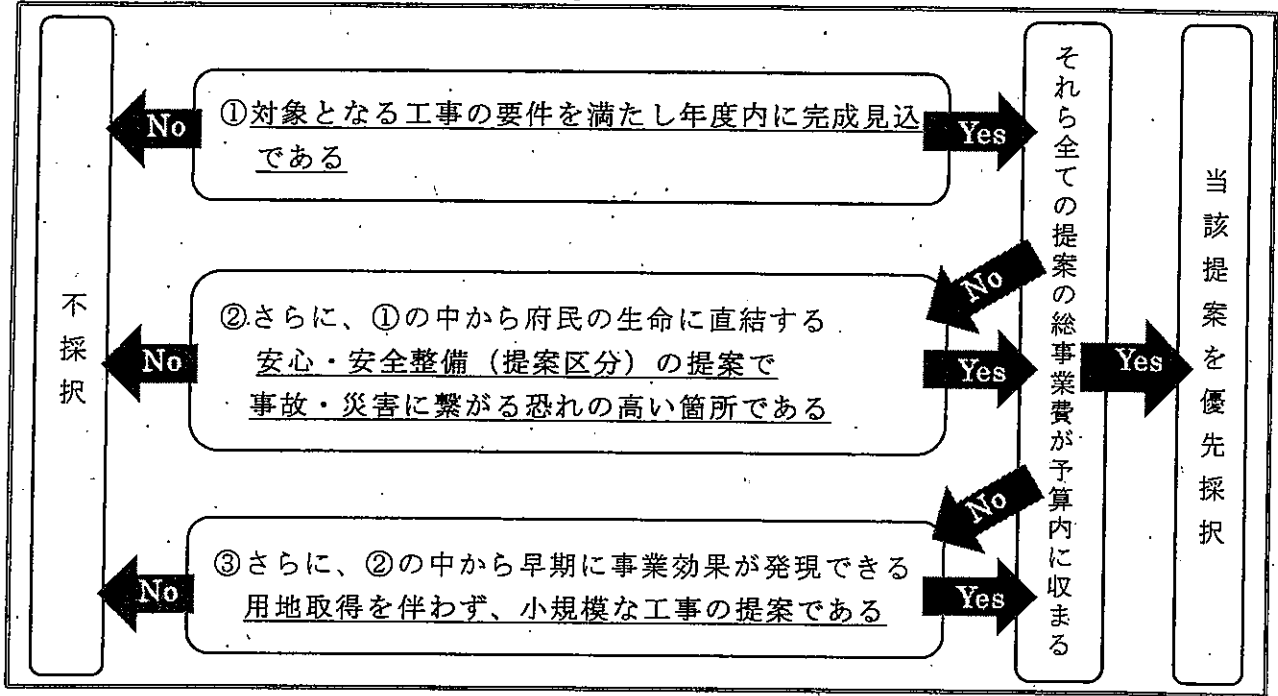 不採択
No
①対象となる工事の要件を満たし年度内に完成見込
である
Yes
No
②さらに、①の中から府民の生命に直結する
安心・安全整備（提案区分）の提案で
事故・災害に繋がる恐れの高い箇所である
No
Yes
No
③さらに、②の中から早期に事業効果が発現できる
用地取得を伴わず、小規模な工事の提案である
No
Yes
それら全ての提案の総事業費が予算内に収まる
Yes
当該提案を優先採択